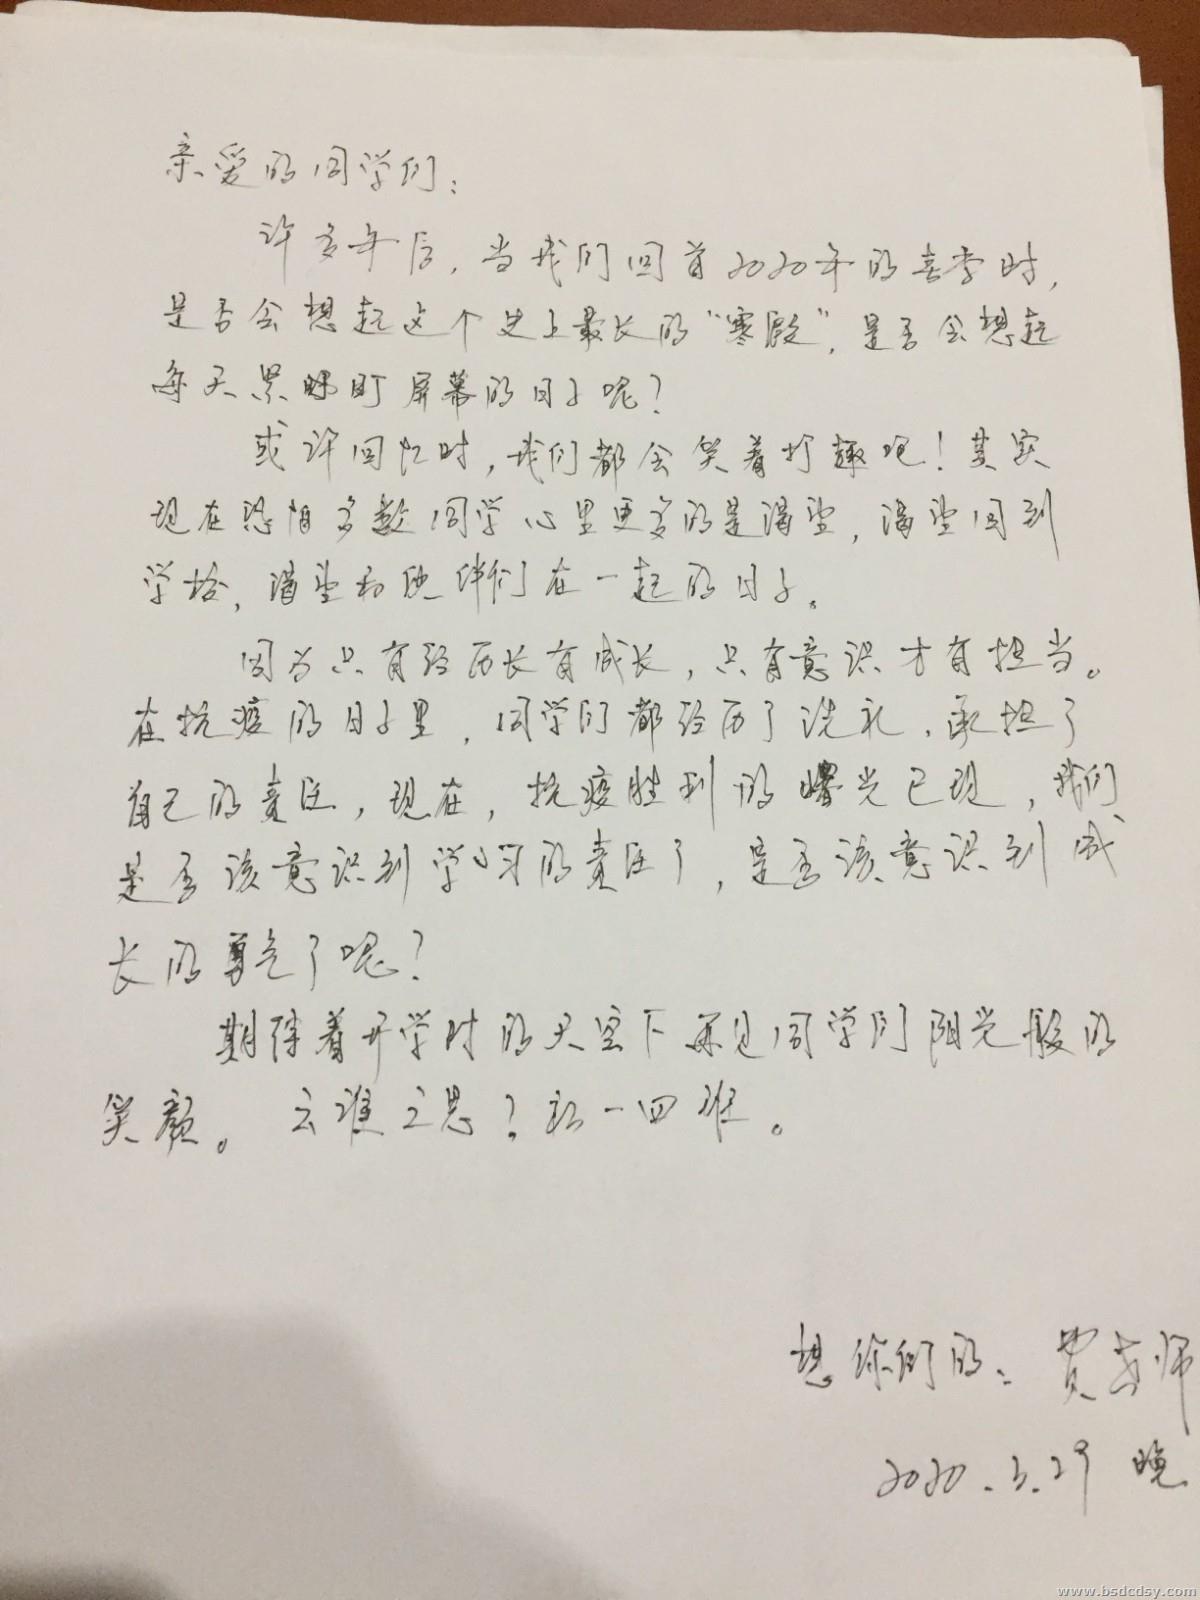 亲爱的同学们：
许多年后，当我们回首2020年的春季时，
是否会想起这个史上最长的“寒假”，是否会想起
每天累眯盯屏幕的日子呢？
或许回忆时，我们都会笑着打趣吧！其实
现在恐怕多数同学心里更多的是渴望，渴望回到
学校，渴望和伙伴们在一起的日子。
因为只有经历长有成长，只有意识才有担当。
在抗疫的日子里，同学们都经历了洗礼，承担了
自己的责任，现在，抗疫胜利的曙光已现，我们
是否该意识到学习的责任了，是否该意识到成
长的勇气了呢？
期待着开学时的天空下再见同学们阳光般的
笑颜。云谁之思？初一四班。
想你们的：贾老师
2020.3.29 晚
www.bsdcdsy.com